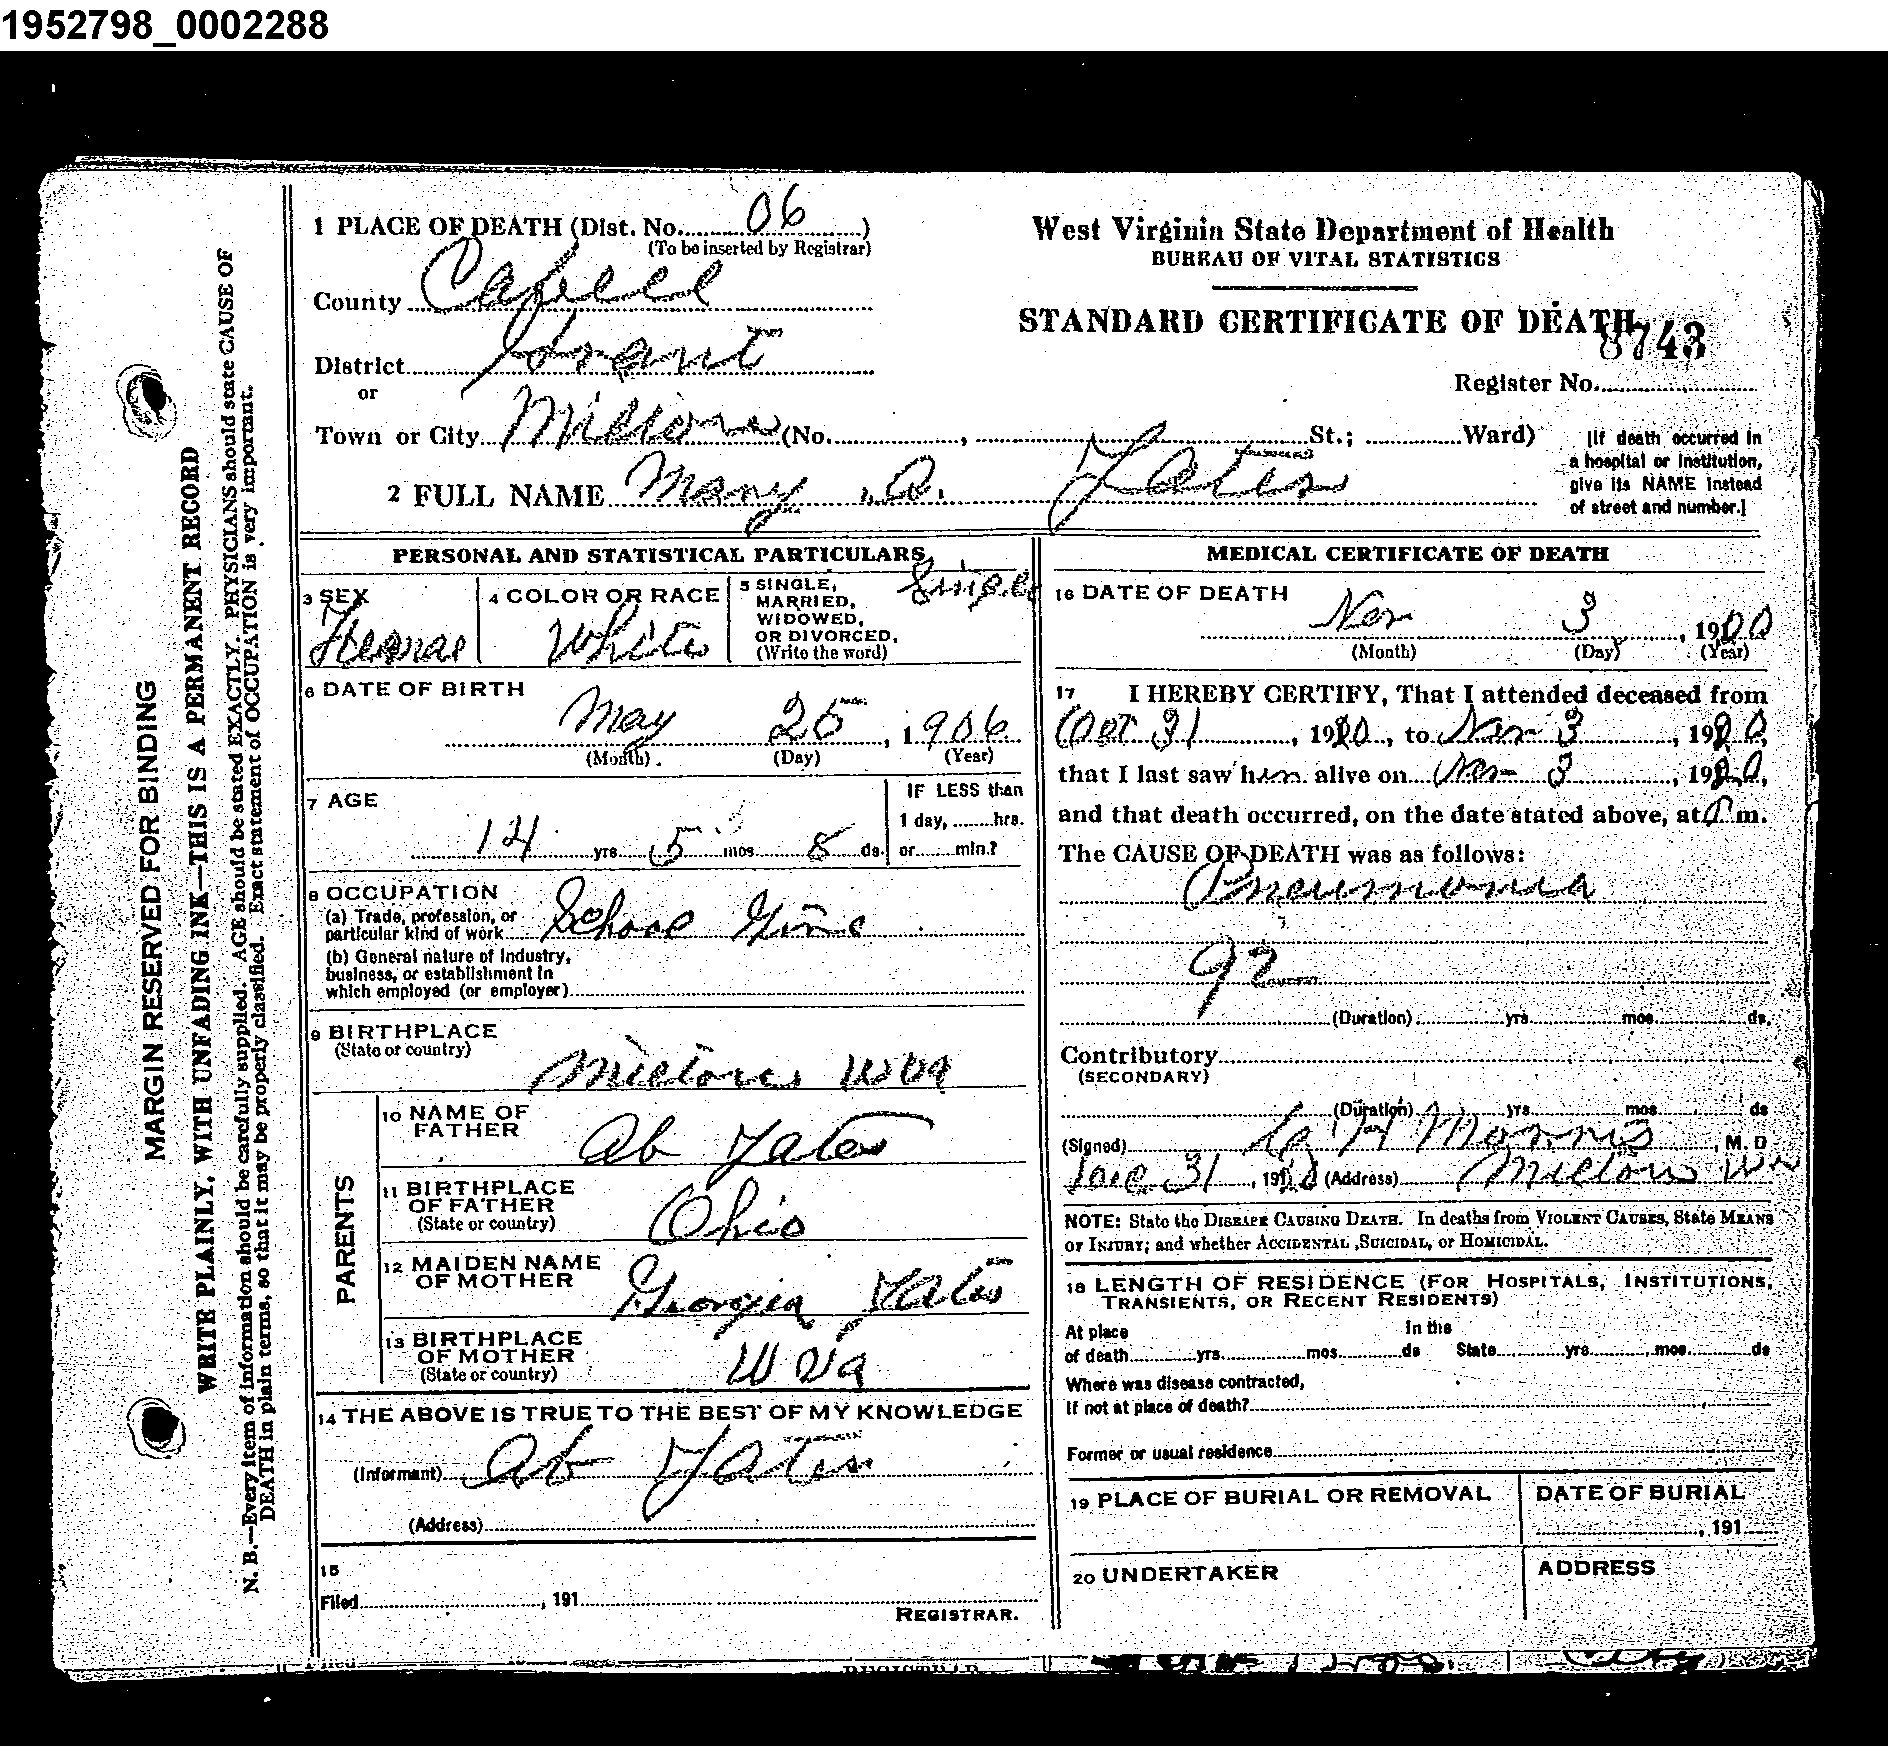 1952798_0002288
1 PLACE OF DEATH (Dist. No. 06 )
(To be inserted by Registrar)
County Cabell
District Grant
or
Town or City Milton (No. , St.; Ward)
2 FULL NAME Mary A. Yates
West Virginia State Department of Health
BUREAU OF VITAL STATISTICS
STANDARD CERTIFICATE OF DEATH
8743
Register No.
[If death occurred in
a hospital or institution,
give its NAME instead
of street and number.]
MARGIN RESERVED FOR BINDING
WRITE PLAINLY, WITH UNFADING INK—THIS IS A PERMANENT RECORD
N. B.—Every item of information should be carefully supplied. AGE should be stated EXACTLY. PHYSICIANS should state CAUSE OF
DEATH in plain terms, so that it may be properly classified. Exact statement of OCCUPATION is very important.
PERSONAL AND STATISTICAL PARTICULARS
3 SEX
Female
4 COLOR OR RACE
White
5 SINGLE,
MARRIED,
WIDOWED,
OR DIVORCED,
(Write the word)
Single
6 DATE OF BIRTH
May 26, 1906
(Month) (Day) (Year)
7 AGE
14 yrs 5 mos 8 ds.
IF LESS than
1 day, hrs.
or min.?
8 OCCUPATION
(a) Trade, profession, or
particular kind of work School Girl
(b) General nature of industry,
business, or establishment in
which employed (or employer)
9 BIRTHPLACE
(State or country)
Milton W Va
PARENTS
10 NAME OF
FATHER
Ab Yates
11 BIRTHPLACE
OF FATHER
(State or country)
Ohio
12 MAIDEN NAME
OF MOTHER
Georgia Yates
13 BIRTHPLACE
OF MOTHER
(State or country)
W Va
14 THE ABOVE IS TRUE TO THE BEST OF MY KNOWLEDGE
(Informant) Ab Yates
(Address)
15
Filed , 191
REGISTRAR.
MEDICAL CERTIFICATE OF DEATH
16 DATE OF DEATH
Nov 3
(Month) (Day) (Year)
17 I HEREBY CERTIFY, That I attended deceased from
Oct 31, 1920, to Nov 3, 1920,
that I last saw h alive on Nov 3, 1920,
and that death occurred, on the date stated above, at m.
The CAUSE OF DEATH was as follows:
Pneumonia
92
(Duration) yrs mos ds.
Contributory
(SECONDARY)
(Duration) yrs mos ds
(Signed) H Morris, M. D
Dec 31, (Address) Milton W Va
NOTE: State the DISEASE CAUSING DEATH. In deaths from VIOLENT CAUSES, State MEANS
OF INJURY; and whether ACCIDENTAL, SUICIDAL, or HOMICIDAL.
18 LENGTH OF RESIDENCE (FOR HOSPITALS, INSTITUTIONS,
TRANSIENTS, OR RECENT RESIDENTS)
At place In the
of death yrs mos ds State yrs mos ds
Where was disease contracted,
If not at place of death?
Former or usual residence
19 PLACE OF BURIAL OR REMOVAL
DATE OF BURIAL
, 191
20 UNDERTAKER
ADDRESS